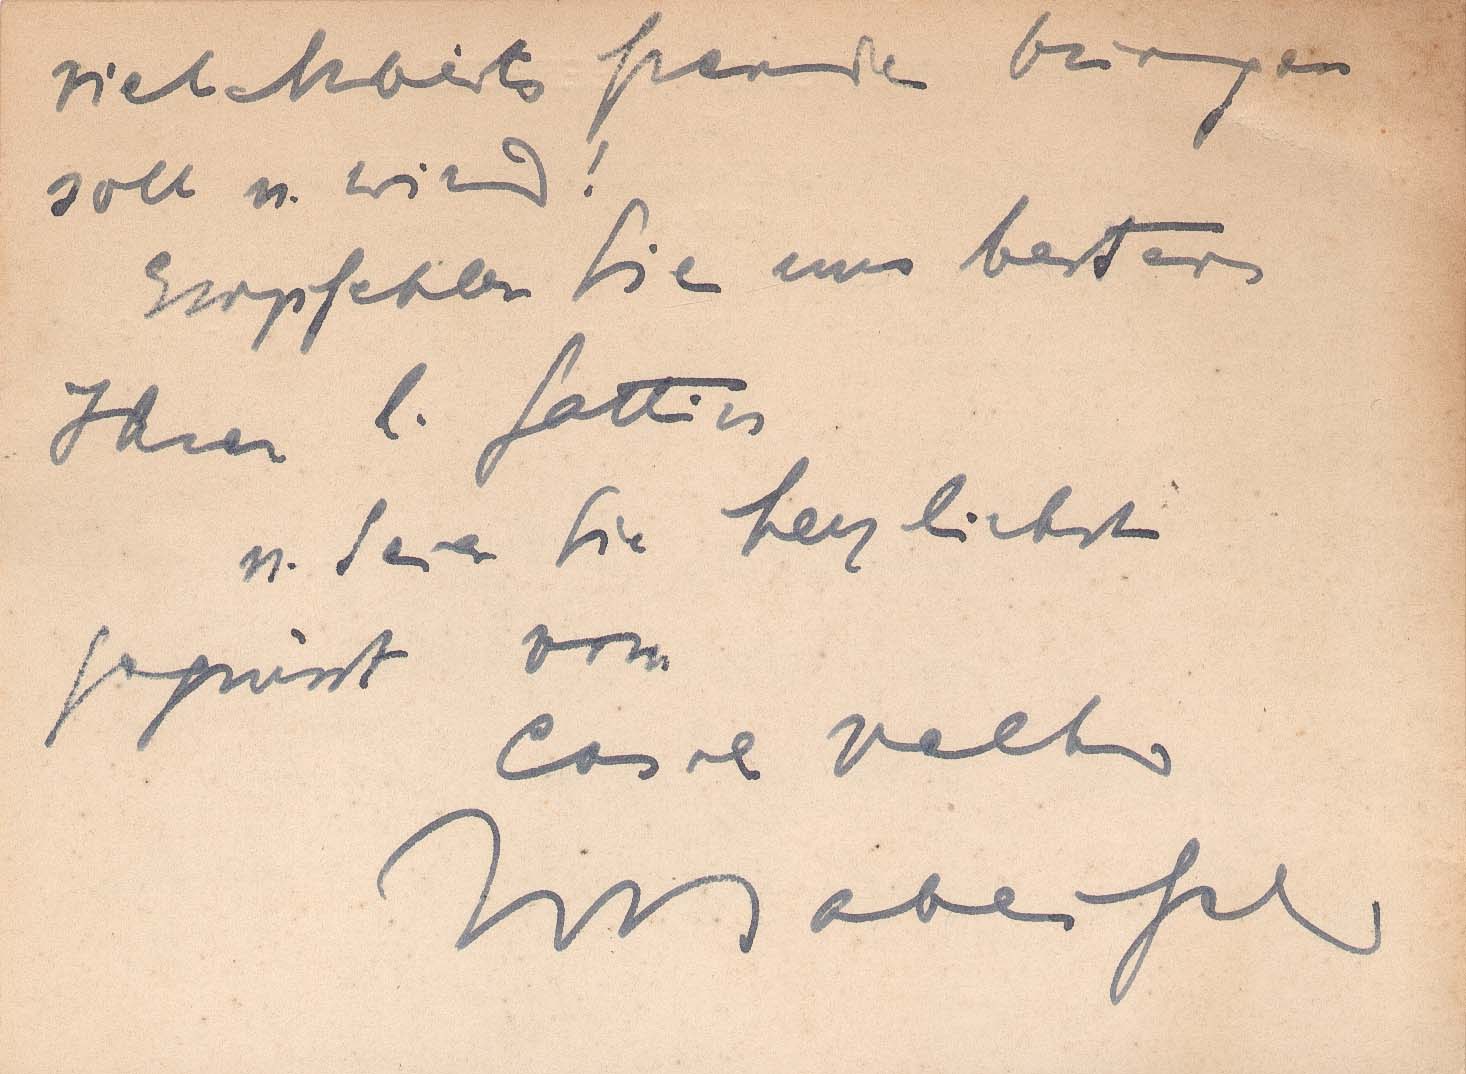 viel Arbeitsfreude bringen
soll u. wird!
Empfehlen Sie uns bestens
Ihrer l. Gattin
u. seien Sie herzlichst
gegrüsst vom